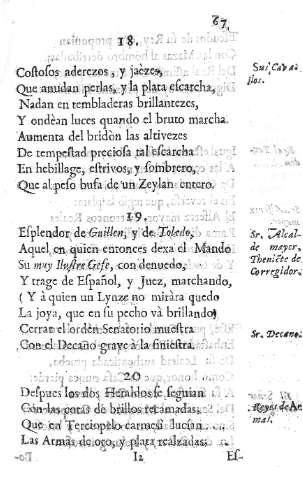 67.
18.
Costosos aderezos, y jaèzes,
Que anudan perlas, y la plata escarcha,
Nadan en tembladeras brillantezes,
Y ondèan luces quando el bruto marcha.
Aumenta del bridòn las altivezes
De tempestad preciosa tal escarcha
En hebillage, estrivos, y sombrero,
Que al peso bufa de un Zeylan entero.
Sus Cavallos.
19.
Esplendor de Guillen, y de Toledo,
Aquel en quien entonces dexa el Mando
Su muy Ilustre Gefe, con denuedo,
Y trage de Español, y Juez, marchando,
(Y à quien un Lynze no miràra quedo
La joya, que en su pecho và brillando)
Cerrar el ordèn Senatorio muestra
Con el Decano grave à la siniestra.
Sr. Alcalde mayor, Theniẽte de Corregidor.
Sr. Decano.
20
Despues los dos Heraldos se seguian
Con las cotas de brillos recamadas;
Que en Terciopelo carmesì lucian
Las Armas de oro, y plata realzadas;
Reyes de Armas.
I2
Es-